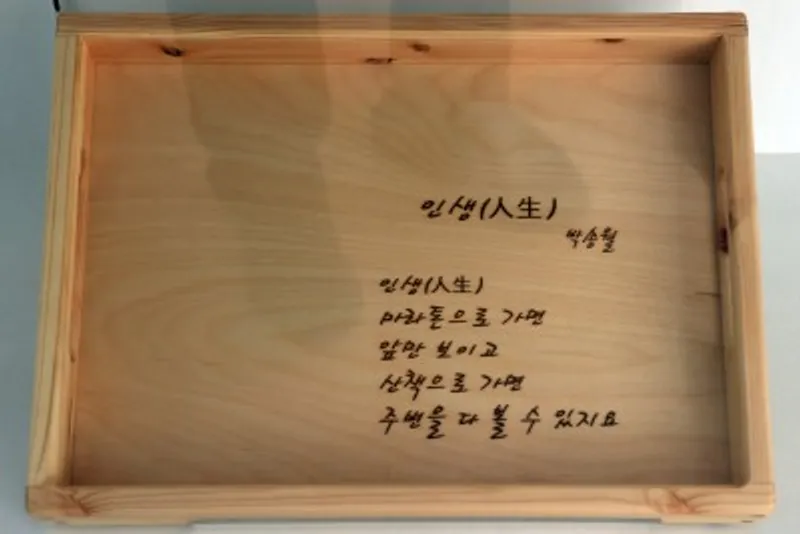 인생(人生)
박송월
인생(人生)
마라톤으로 가면
앞만 보이고
산책으로 가면
주변을 다 볼 수 있지요